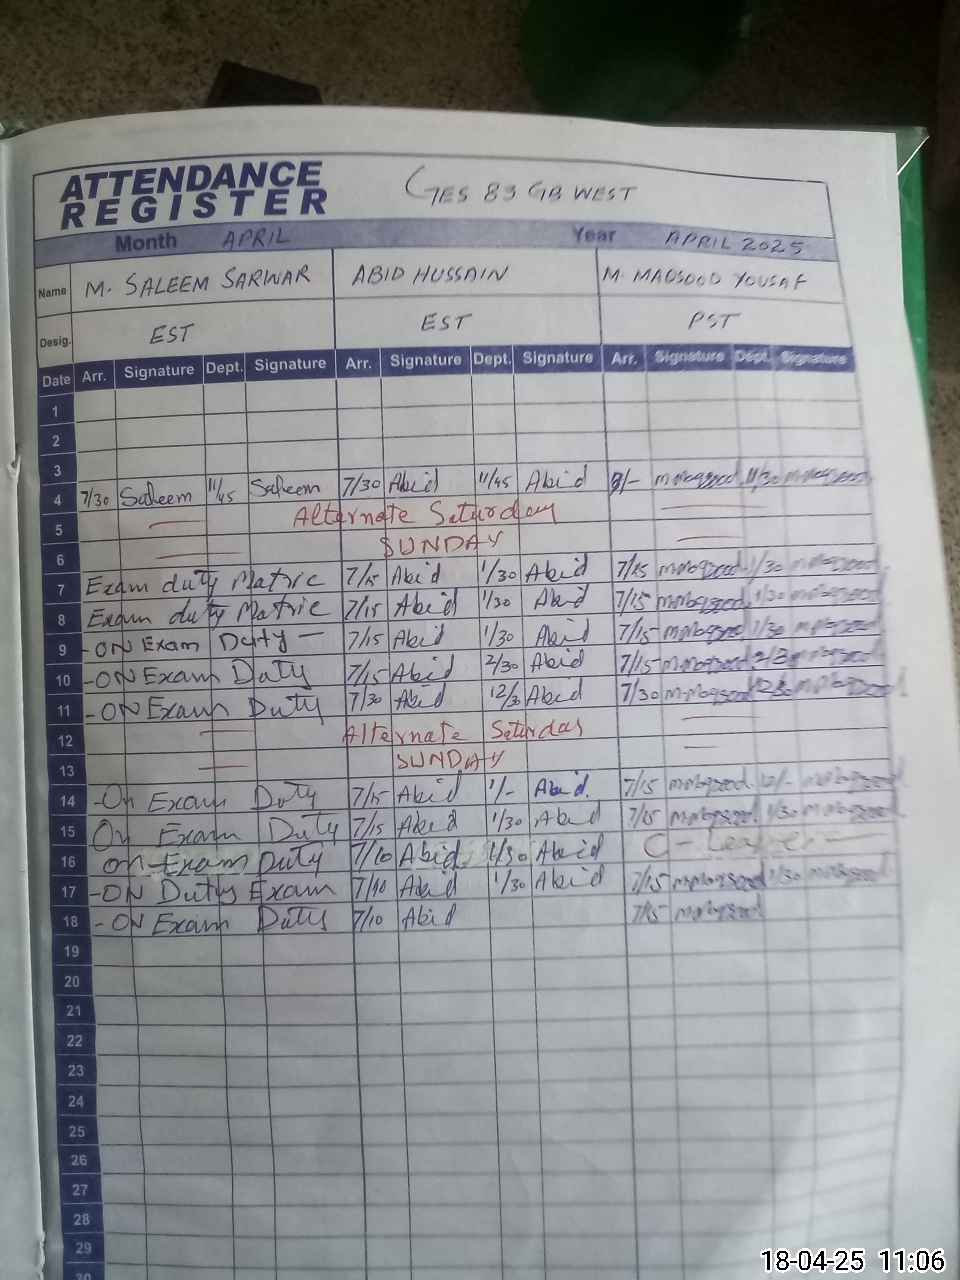 ATTENDANCE REGISTER GES 83 GB WEST
Month APRIL Year APRIL 2025
Name M. SALEEM SARWAR ABID HUSSAIN M. MAQSOOD YOUSAF
Desig. EST EST PST
Date Arr. Signature Dept. Signature Arr. Signature Dept. Signature Arr. Signature Dept. Signature
1
2
3
4 7/30 Saleem 11/45 Saleem 7/30 Abid 11/45 Abid 8/- 11/30
5 Alternate Saturday
6 SUNDAY
7 Exam duty Matric 7/15 Abid 1/30 Abid 7/15 1/30
8 Exam duty Matric 7/15 Abid 1/30 Abid 7/15 1/30
9 - ON Exam Duty - 7/15 Abid 1/30 Abid 7/15 1/30
10 - ON Exam Duty 7/15 Abid 2/30 Abid 7/15
11 - ON Exam Duty 7/30 Abid 12/30 Abid 7/30 12/30
12 Alternate Saturday
13 SUNDAY
14 - On Exam Duty 7/15 Abid 1/- Abid. 7/15
15 On Exam Duty 7/15 Abid 1/30 Abid 7/15 1/30
16 on Exam Duty 7/10 Abid 1/30 Abid C - Leave -
17 - ON Duty Exam 7/10 Abid 1/30 Abid 7/15 1/30
18 - ON Exam Duty 7/10 Abid 7/15
19
20
21
22
23
24
25
26
27
28
29
30
18-04-25 11:06